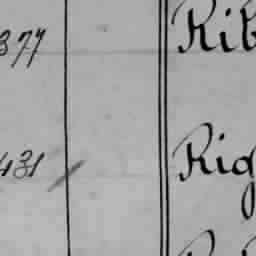 377 Rib
431 Rig